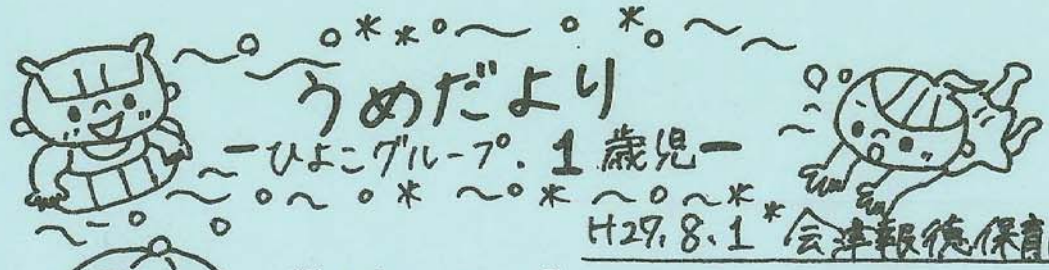 うめだより
－ひよこグループ。1歳児－
H27.8.1 会津報徳保育